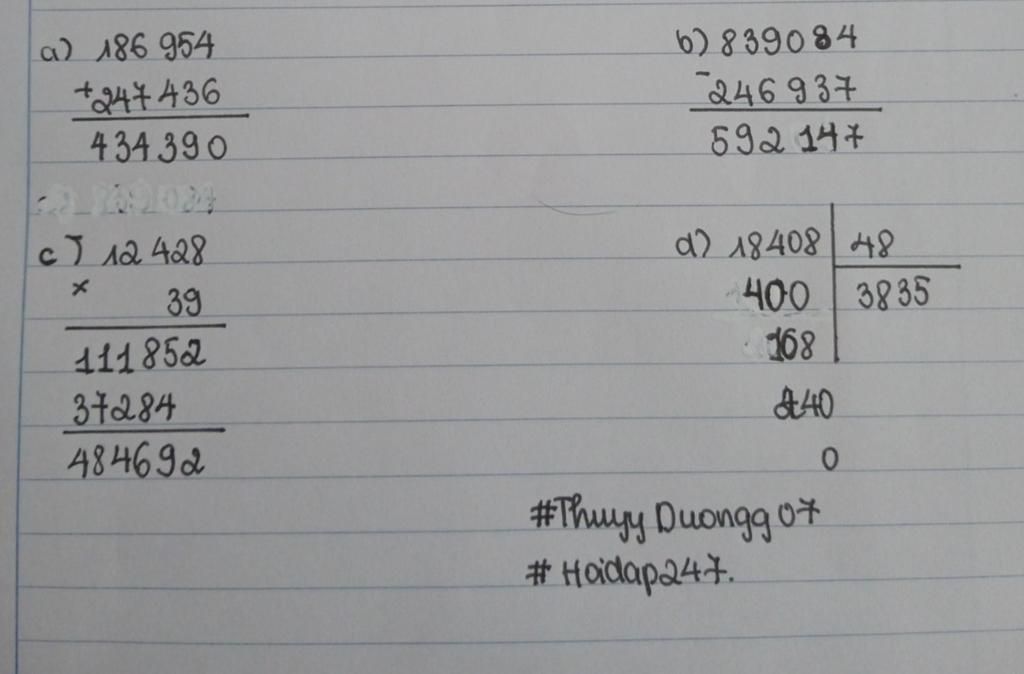 a) 186 954
+ 247 436
434390
b) 839084
- 246 937
592 147
c) 12 428
x 39
111852
37284
484692
d) 18408 48
400 3835
168
240
0
#Thuyy Duongg 07
# Hoidap247.